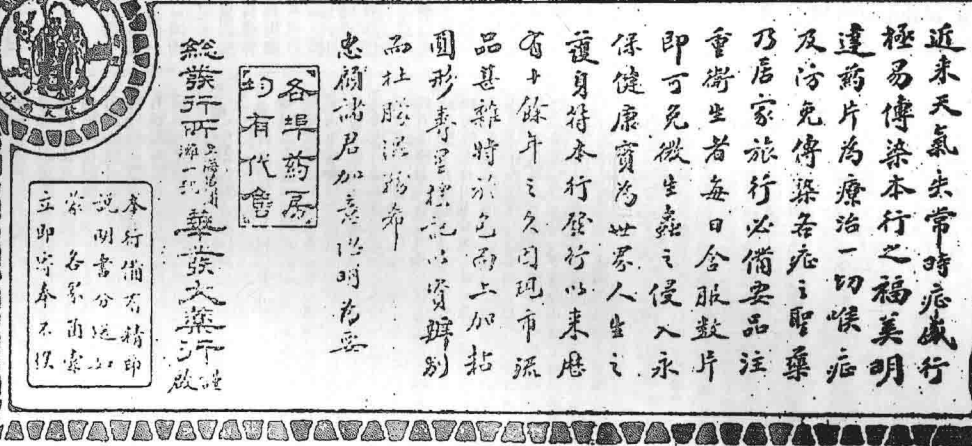 近来天氣失常時症盛行
極易傳染本行之福美明
達药片為療治一切喉症
及防免傳染各症之聖藥
乃居家旅行必備要品注
重衛生者每日含服数片
即可免微生蟲之侵入永
保健康實為世界人生之
護身符本行發行以来歷
有十餘年之久因現市混
品甚雜特於包面上加粘
圓形壽星標記以資辨别
而杜朦混務希
忠顧諸君加意認明為要
各埠药房
均有代售
總發行所
上海黄浦
灘一號
華發大藥行
謹啟
本行備有精印
説明書分送如
蒙各界函索
立即寄奉不悮